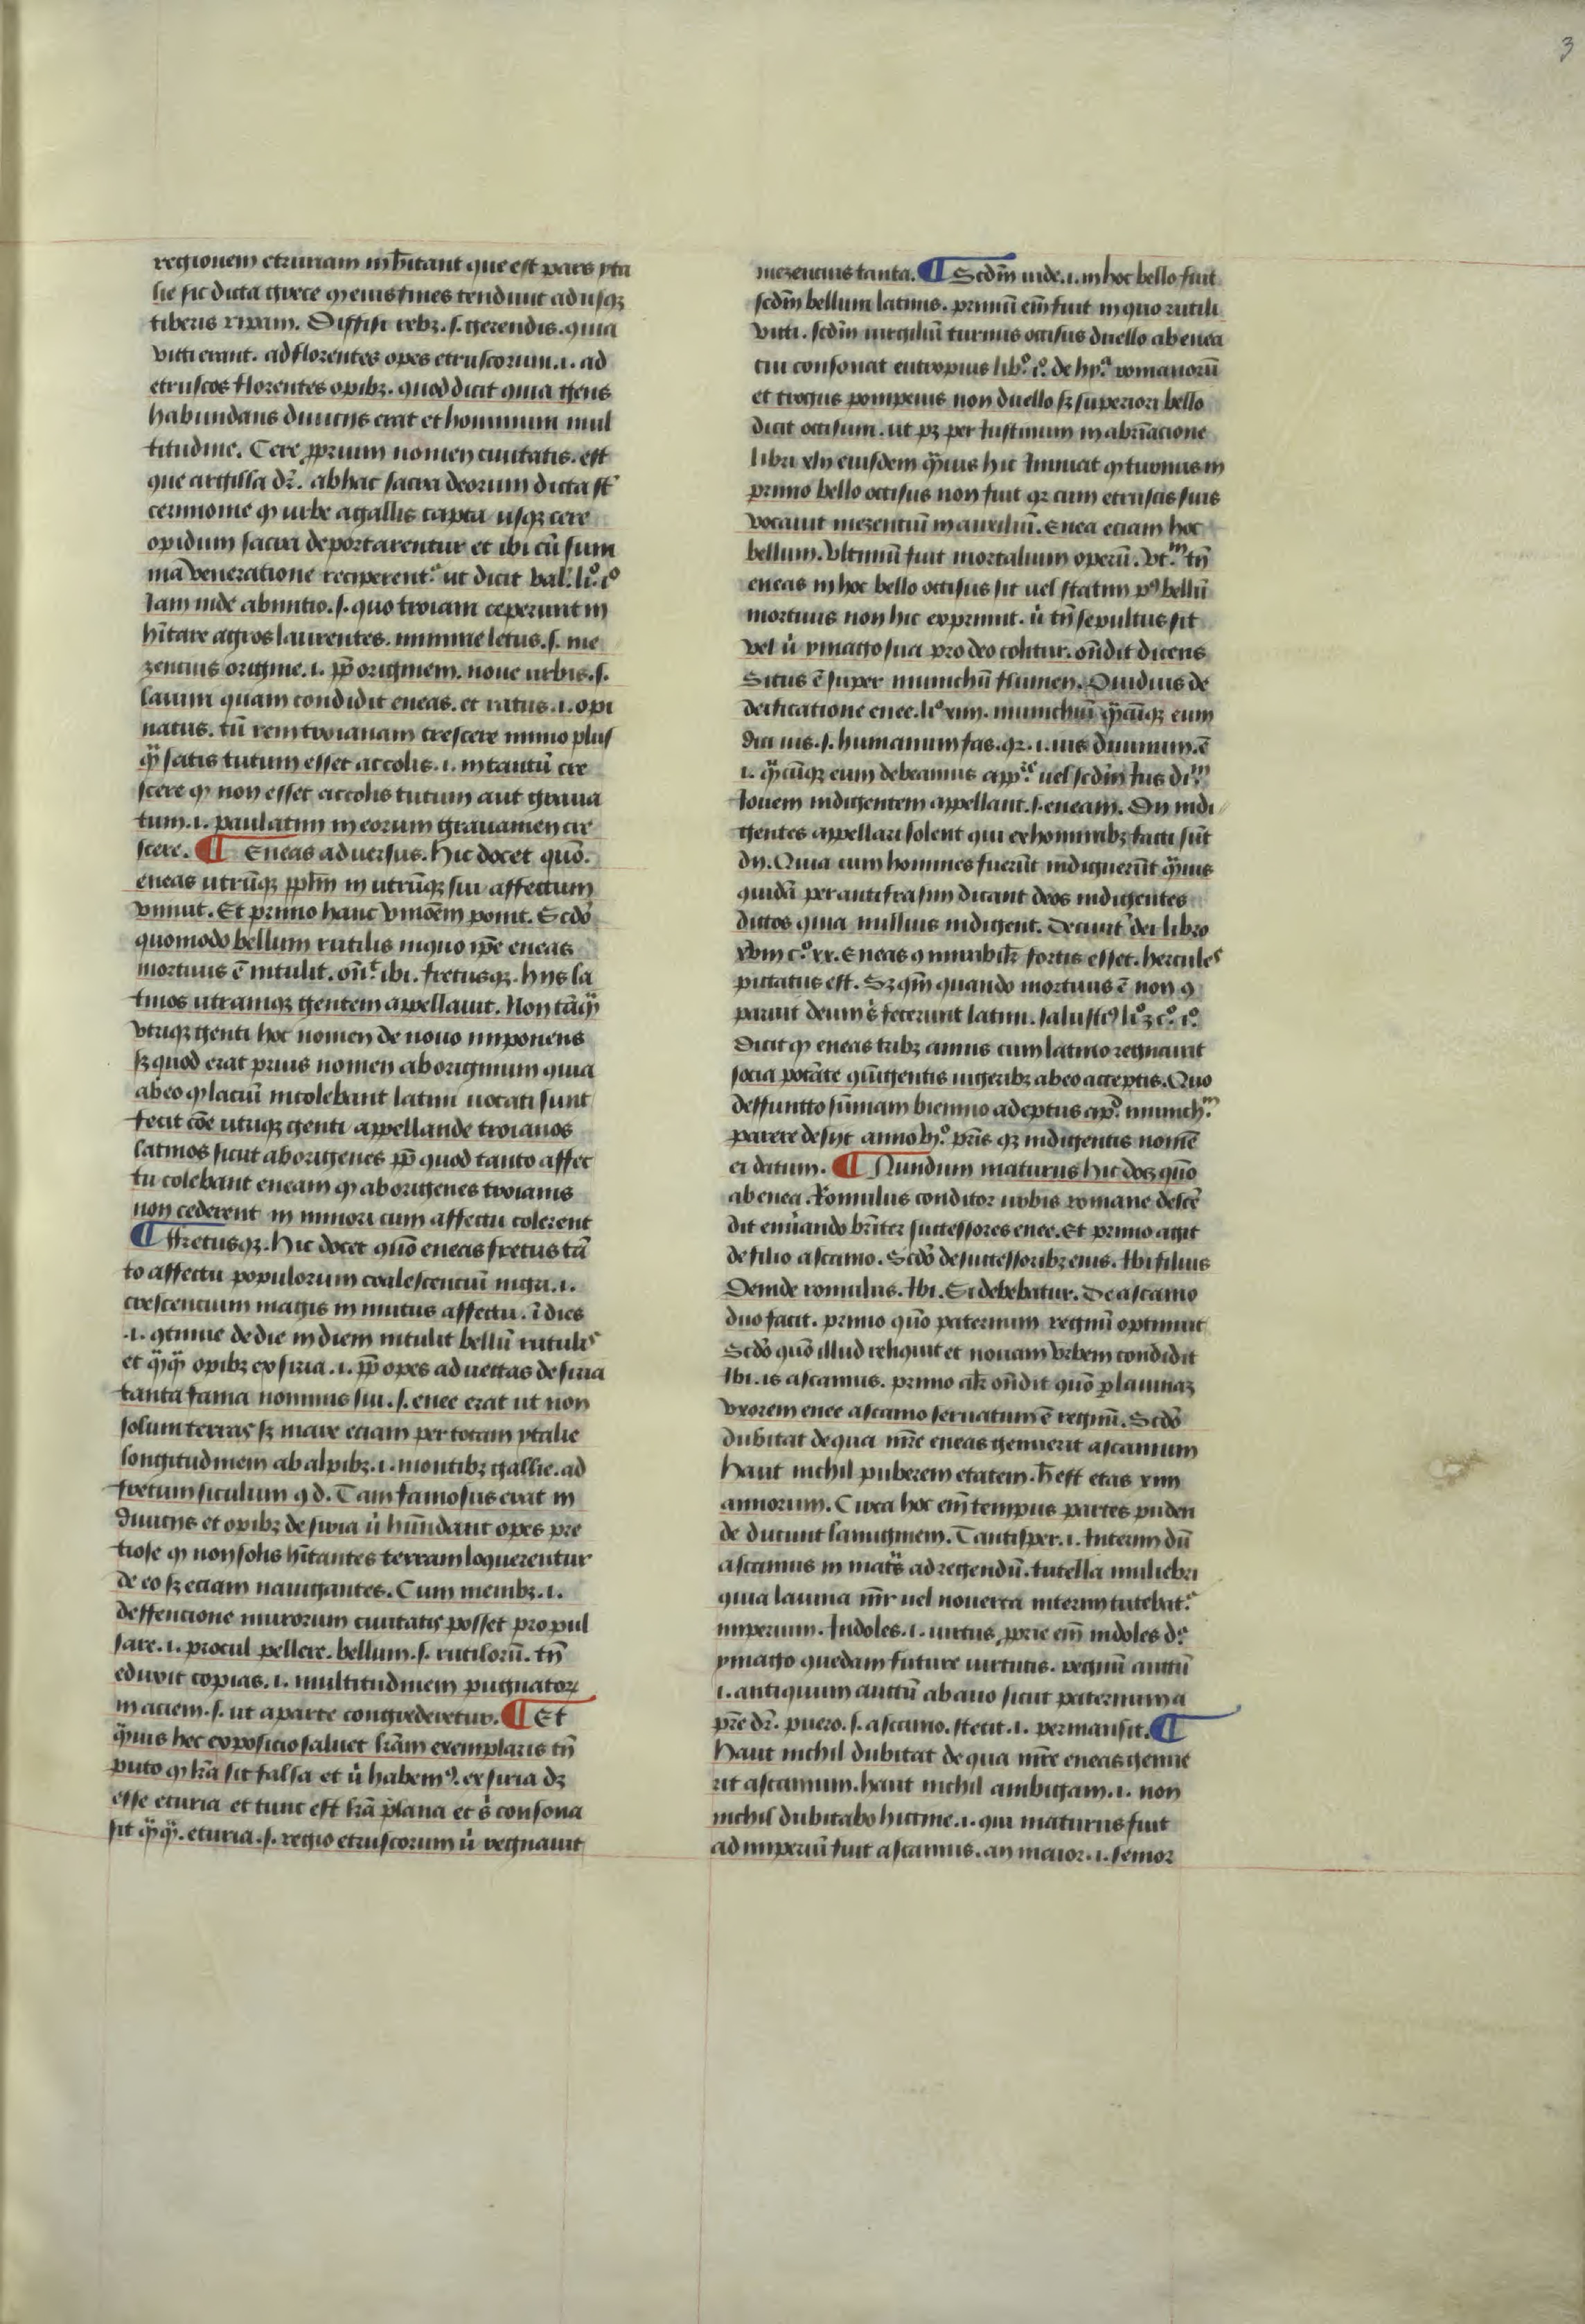 3
regionem etruriam inh̄itant que est pars yta
lie sic dicta grece ꝙ eius fines tendunt ad usqꝫ
tiberis ripam. Diffisi rebꝫ .s. gerendis. quia
victi erant. ad florentes opes etruscorum .i. ad
etruscos florentes opibꝫ. quod dicit quia gens
habundans diuiciis erat et hominum mul
titudine. Cere ꝓprium nomen ciuitatis. est
que argilla dr̄. ab hac sacra deorum dicta st̄
cerimonie ꝙ urbe a gallis capta usqꝫ cere
opidum sacra deportarentur et ibi cū sum
ma veneratione reciperent᷑ ut dicit val. li.º i.º
Iam inde ab initio .s. quo troiam ceperunt in
hītare agros laurentes. minime letus .s. me
zencius origine .i. ꝓp̄ originem. noue urbis .s.
lauini quam condidit eneas. et ratus .i. opi
natus. tū rem troianam crescere nimio plus
qͣ̄ satis tutum esset accolis .i. in tantū cre
scere ꝙ non esset accolis tutum aut graua
tum .i. paulatim in eorum grauamen cre
scere. ¶ Eneas aduersus. Hic docet quō.
eneas utrūqꝫ ppl̄m in utrūqꝫ sui affectum
vniuit. Et primo hanc vnioēm ponit. Scd̄o
quomodo bellum rutilis in quo ip̄e eneas
mortuus ē intulit. on̄.t ibi. fretusqꝫ. hijs la
tinos utramqꝫ gentem appellauit. Non tāqͣ̄
vtriqꝫ genti hoc nomen de nouo imponens
sꝫ quod erat prius nomen aboriginum quia
ab eo ꝙ laciū incolebant latini uocati sunt
fecit cōe utriqꝫ genti appellande troianos
latinos sicut aborigenes ꝓp̄ quod tanto affec
tu colebant eneam ꝙ aborigenes troianis
non cederent in minori cum affectu colerent
¶ ffretusqꝫ. Hic docet quō eneas fretus tā
to affectu populorum coalescenciū magis .i.
crescencium magis in mutuis affectu. ī dies
.i. ꝯtinue de die in diem intulit bellū rutulis
et qͣ̄qͣ̄ opibꝫ ex siria .i. ꝓp̄ opes aduectas de siria
tanta fama nominis sui .s. enee erat ut non
solum terras sꝫ mare eciam per totam ytalie
longitudinem ab alpibꝫ .i. montibꝫ gallie. ad
fretum siculum ꝙ d. Tam famosus erat in
diuiciis et opibꝫ de siria ù hūndant opes pre
ciose ꝙ non solis hītantes terram loquerentur
de eo sꝫ eciam nauigantes. Cum menibꝫ .i.
deffencione murorum ciuitatis posset propul
sare .i. procul pellere. bellum .s. rutilorū. tn̄
eduxit copias .i. multitudinem pugnatorꝝ
in aciem .s. ut aparte congrederetur. ¶ Et
qͣ̄uis hec expositio saluet lr̄am exemplaris tn̄
puto ꝙ lr̄a sit falsa et ù habem⁹. ex siria dꝫ
esse eturia et tunc est lr̄a plana et ṡ consona
sit qͣ̄qͣ̄. eturia .s. regio etruscorum ù regnauit
mezencius tanta. ¶ Scdm̄ inde .i. in hoc bello fuit
scdm̄ bellum latinis. primū em̄ fuit in quo rutili
victi. scdm̄ uirgiliū turnus occisus duello ab enea
cui consonat eutropius lib.º i.º de hy.ª romanorū
et trogus pompeius non duello sꝫ superiori bello
dicit occisum. ut pꝫ per Iustinum in abreuiacione
libri xliij eiusdem qͣ̄uis hic Innuat ꝙ turnus in
primo bello occisus non fuit qꝛ cum etruscis suis
vocauit mezentiū in auxiliū. Enea eciam hoc
bellum. Vltimū fuit mortalium operū. Vt.m tn̄
eneas in hoc bello occisus sit uel statim p⁹ bellū
mortuus non hic exprimit. ù tn̄ sepultus sit
vel ù ymago sua pro deo colitur. on̄dit dicens
Situs ē super munichū flumen. Ouidius de
deificatione enee. li.º xiiij. munichiū qͣ̄cūqꝫ eum
dici ius .s. humanum fas. qꝛ .i. ius diuinum. ē
.i. qͣ̄cūqꝫ eum debeamus app.re uel scdm̄ Ius di.m
Iouem indigentem appellant .s. eneam. Dij indi
gentes appellari solent qui ex hominibꝫ facti sūt
dij. Quia cum homines fuerūt indiguerūt qͣ̄uis
quidā per antifrasim dicant deos indigentes
dictos quia nullius indigent. De ciuit᷑ dei libro
xviij c.º xx. Eneas ꝙ mirabil̄r fortis esset. hercules
putatus est. Sꝫ qm̄ quando mortuus ē non ꝯ
paruit deum ṡ fecerunt latini. salusti⁹ li.º 3 c.º i.º
Dicit ꝙ eneas tribꝫ annis cum latino regnauit
socia potāte qͥ̄ngentis iugeribꝫ ab eo acceptis. Quo
deffuncto sūmam biennio adeptus ap.d munich.m
parere desijt anno vij.º pr̄is qꝫ indigentis nomē
ei datum. ¶ Nundum maturus hic docꝫ quō
ab enea Romulus conditor urbis romane descē
dit enūando br̄iter successores enee. Et primo agit
de filio ascanio. Scd̄o de successoribꝫ eius. Ibi filius
Deinde romulus. Ibi. Et debebatur. De ascanio
duo facit. primo quō paternum regnū optinuit
Scd̄o quō illud reliquit et nouam vrbem condidit
Ibi. is ascanius. primo ak̄ on̄dit quō ꝑ lauiniaꝫ
vxorem enee ascanio seruatum ē regnū. Scd̄o
dubitat de qua mr̄e eneas genuerit ascanium
haut nichil puberem etatem. h̄ est etas xiiij
annorum. Circa hoc em̄ tempus partes puden
de ducunt lanuginem. Tantisper .i. Interim dū
ascanius in mat̄s ad regendū. tutella muliebri
quia lauina mr̄ uel nouerca interim tutebat᷑
imperium. Indoles .i. uirtus, ꝓprie em̄ indoles d.r
ymago quedam future uirtutis. regnū auitū
.i. antiquum auitū ab auo sicut paternum a
pr̄e dr̄. puero .s. ascanio. stetit .i. permansit. ¶
haut nichil dubitat de qua mr̄e eneas genue
rit ascanium. haut nichil ambigam .i. non
nichil dubitabo hiccine .i. qui maturus fuit
ad imperiū fuit ascanius. an maior .i. senior